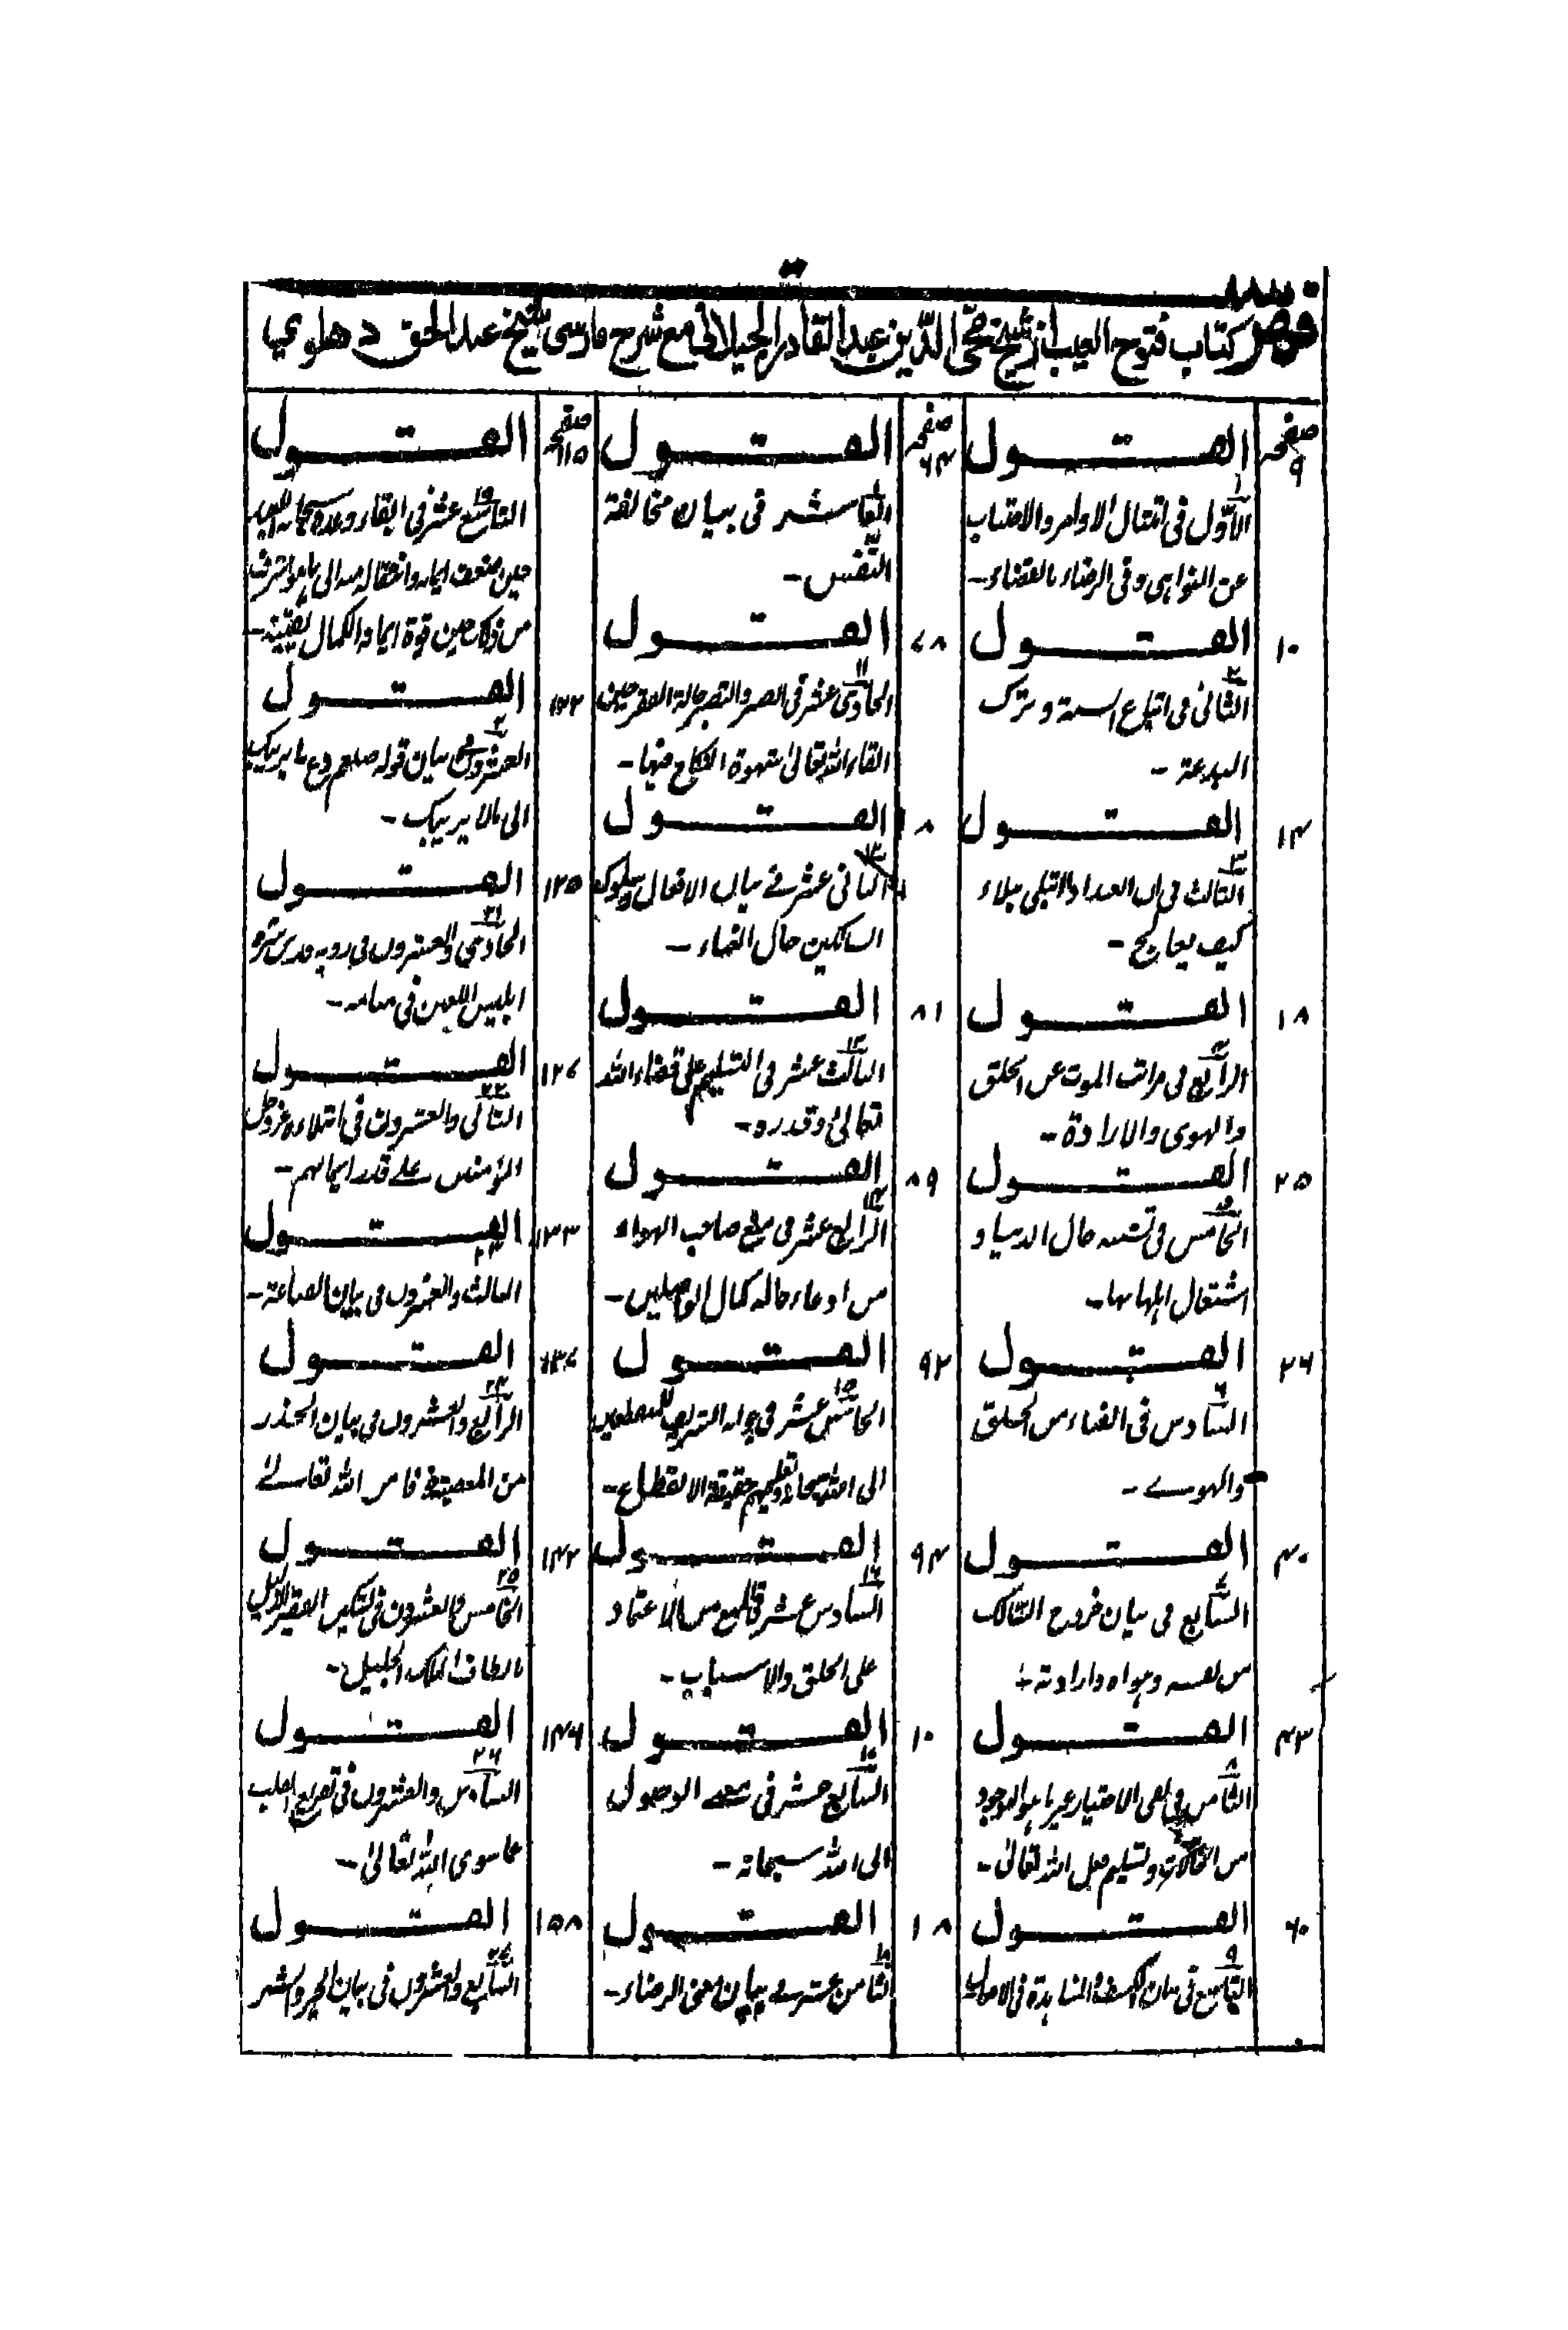 فهرست کتاب فتوح الغیب از شیخ محی الدین عبد القادر الجیلانی مع شرح فارسی شیخ عبد الحق دهلوی
صفحہ
۹
القول
۱
الاول فی امتثال الاوامر والاجتناب
عن النواہی وفی الرضاء بالقضاء۔
۱۰
القول
۲
الثانی فی اتباع السنة و ترک
البدعة۔
۱۴
القول
۳
الثالث فی ان العبد اذا ابتلی ببلاء
کیف یعالج۔
۱۸
القول
۴
الرابع فی مراتب الموت عن الخلق
والہوی والارادة۔
۲۵
القول
۵
الخامس فی تشبیہ حال الدنیا و
اشتغال اہلہا بہا۔
۲۶
القول
۶
السادس فی الفناء من الخلق
والہوے۔
۴۰
القول
۷
السابع فی بیان خروج السالک
من نفسہ وہواہ وارادتہ
۴۳
القول
۸
الثامن فی نفی الاختیار غیر ما ہو الموجود
من الحالات وتسلیم فعل اللہ تعالیٰ۔
۶۰
القول
۹
التاسع فی بیان الکشف والمشاہدة فی الافعال
صفحہ
۶۴
القول
العاشر فی بیان مخالفة
النفس۔
۷۸
القول
۱۱
الحادی عشر فی الصبر والتصبر حالة الفقر حین
القاء اللہ تعالیٰ شہوة النکاح فیہا۔
۸
القول
۱۲
الثانی عشر فے بیان الافعال
السالکین حال النعماء۔
۸۱
القول
۱۳
الثالث عشر فی التسلیم علی قضاء اللہ
تعالیٰ وقدره۔
۸۹
القول
۱۴
الرابع عشر فی منع صاحب الہواء
من ادعاء حالہ کمال الواصلین۔
۹۲
القول
۱۵
الخامس عشر فی
الی اللہ سبحانہ وتعلیمہم حقیقة الانقطاع۔
۹۴
القول
۱۶
السادس عشر فی المنع من الاعتماد
علی الخلق والاسباب۔
۱۰
القول
السابع عشر فی معنے الوصول
الی اللہ سبحانہ۔
۱۸
القول
الثامن عشر فے بیان معنی الرضاء۔
صفحہ
۱۱۵
القول
۱۹
التاسع عشر فی ایفاء وعدہ سبحانہ
حین ضعف ایمانہ وانتقالہ منہ الی ما ہو اشرف
من ذلک حین قوة ایمانہ والکمال یقینہ۔
۱۲۲
القول
العشرون فی بیان قولہ صلعم دع ما یریبک
الی مالا یریبک۔
۱۲۵
القول
۲۱
الحادی والعشرون فی رویہ
ابلیس اللعین فی منامہ۔
۱۲۷
القول
۲۲
الثانی والعشرون فی ابتلاءہ عزوجل
المؤمنین علے قدر ایمانہم۔
۱۳۳
القول
۲۳
الثالث والعشرون فی بیان القناعة۔
۱۳۷
القول
۲۴
الرابع والعشرون فی بیان الحذر
من المعصیة
۱۴۲
القول
۲۵
الخامس والعشرون فی تسکین الفقیر الذلیل
بالطاف الملک الجلیل۔
۱۴۶
القول
۲۶
السادس والعشرون فی تفریغ القلب
عما سوی اللہ تعالیٰ۔
۱۵۸
القول
۲۷
السابع والعشرون فی بیان الخیر والشر